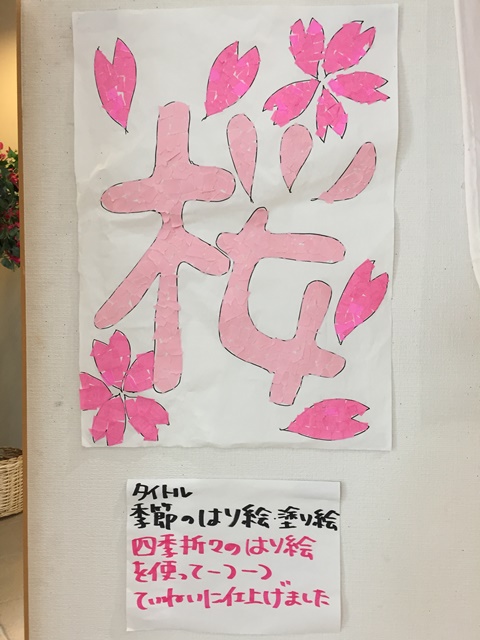 桜
タイトル
季節のはり絵・塗り絵
四季折々のはり絵
を使って一つ一つ
ていねいに仕上げました